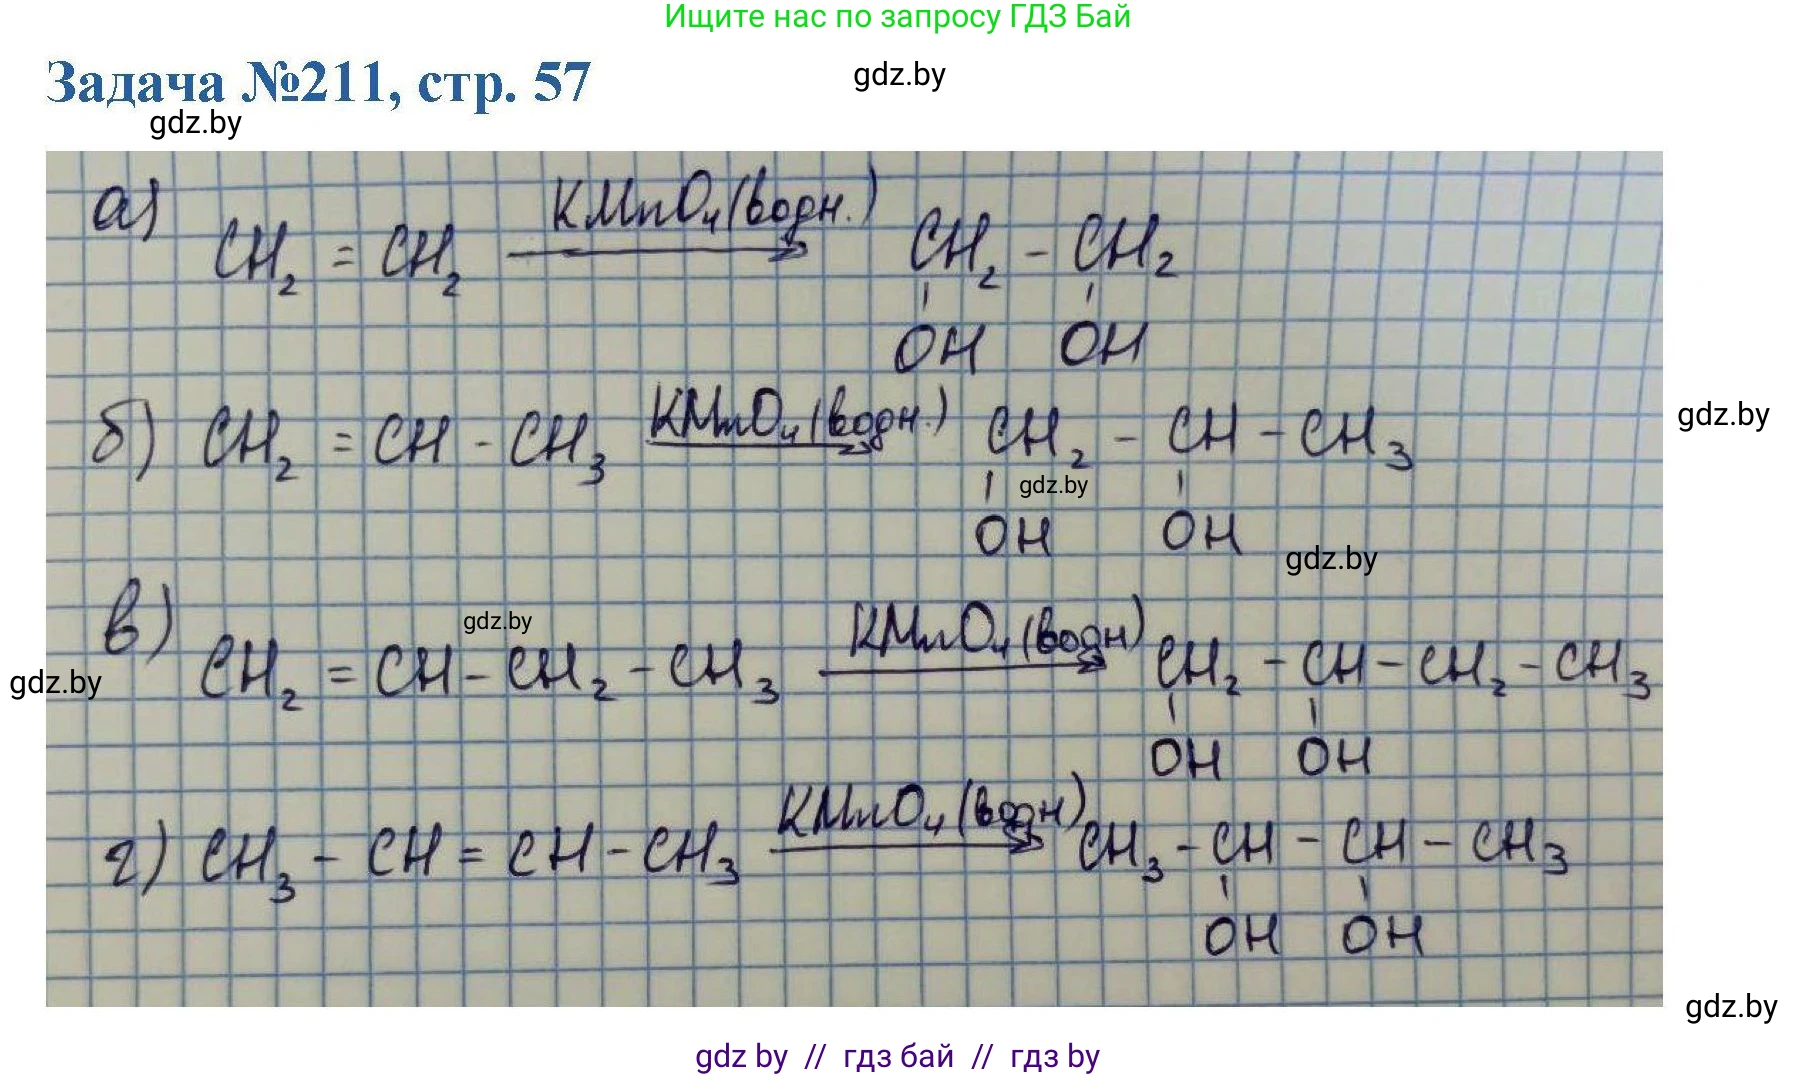 Ищите нас по запросу ГДЗ Бай
Задача №211, стр. 57
gdz.by
gdz.by
а) CH₂ = CH₂ KMnO₄(водн.) CH₂ - CH₂
OH OH
б) CH₂ = CH - CH₃ KMnO₄(водн.) CH₂ - CH - CH₃
gdz.by
gdz.by
OH OH
gdz.by
в) CH₂ = CH - CH₂ - CH₃ KMnO₄(водн) CH₂ - CH - CH₂ - CH₃
gdz.by
gdz.by
OH OH
г) CH₃ - CH = CH - CH₃ KMnO₄(водн) CH₃ - CH - CH - CH₃
OH OH
gdz.by
gdz by // гдз бай // гдз by